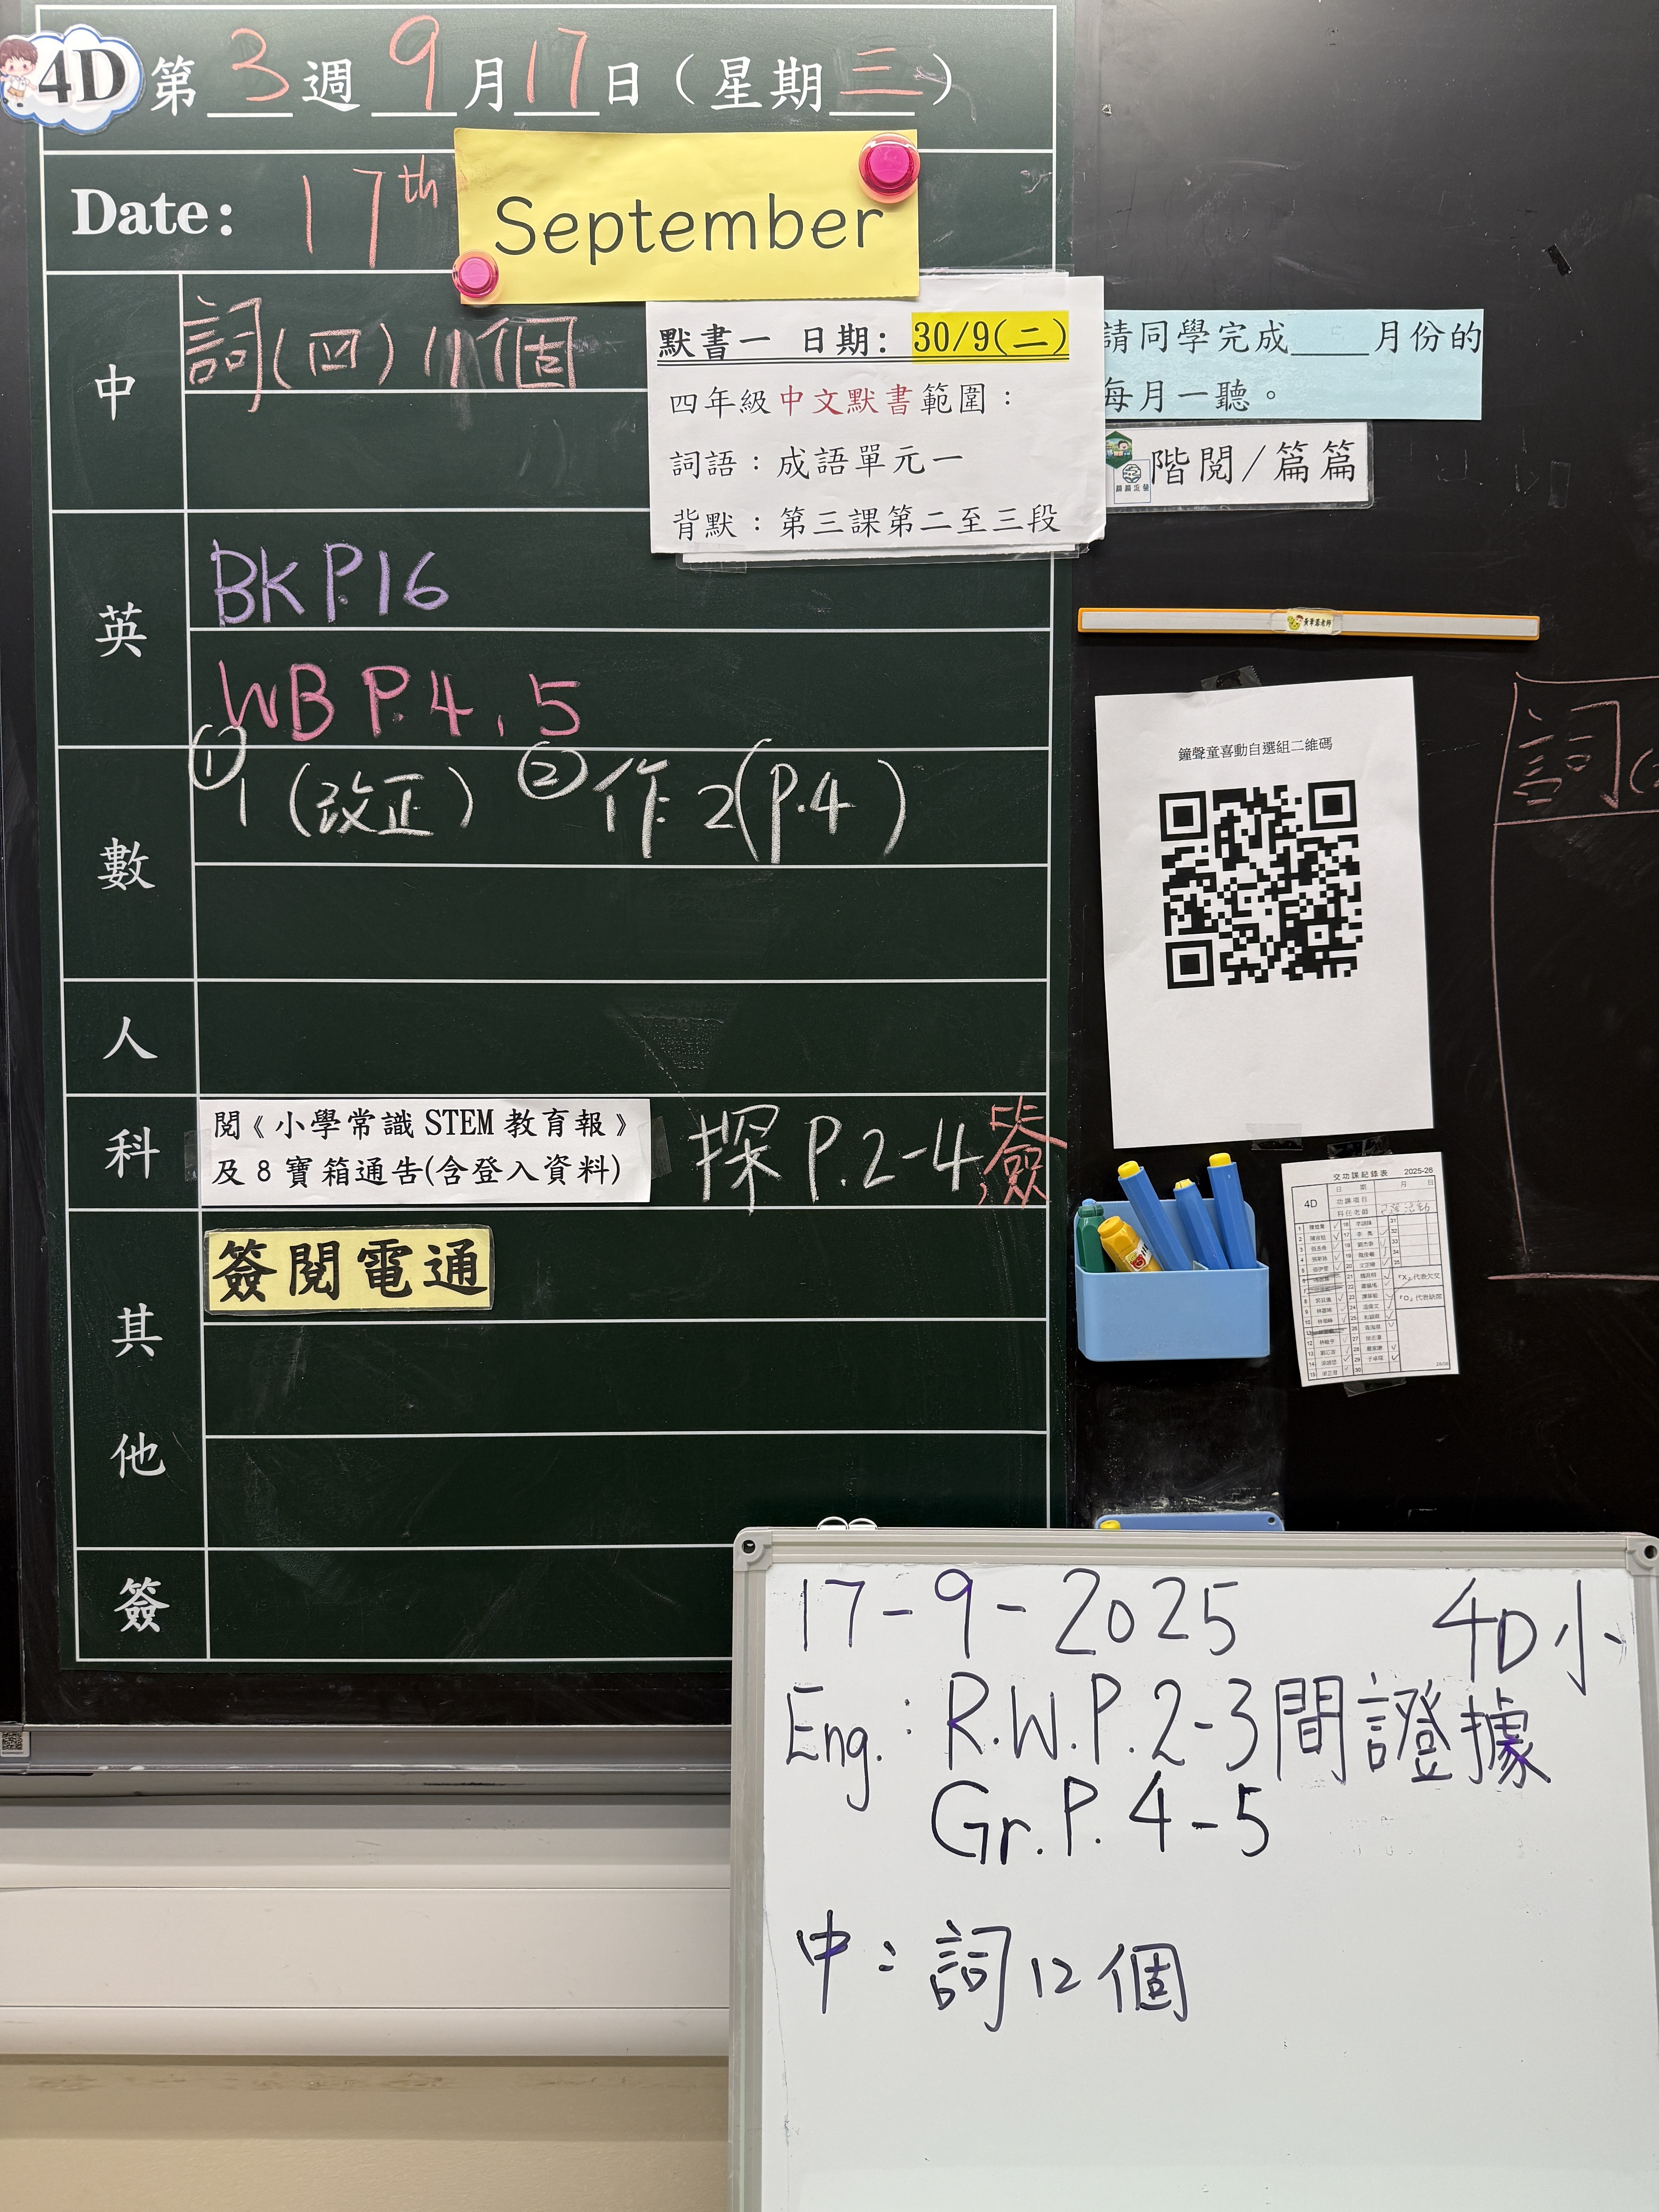 4D 第 3 週 9 月 17 日（星期 三 ）
Date: 17th September
中
詞(四) 11個
默書一 日期: 30/9(二)
四年級中文默書範圍：
詞語：成語單元一
背默：第三課第二至三段
請同學完成____月份的
每月一聽。
階閱/篇篇
英
BK P.16
WB P.4, 5
數
① 1 (改正) ② 作 2(P.4)
人
科
閱《小學常識 STEM 教育報》
及 8 寶箱通告(含登入資料)
探 P.2-4, 簽
其他
簽閱電通
簽
鐘聲童喜動自選組二維碼
詞(
交功課紀錄表 2025-26
4D
日 期 月 日
功課項目
科任老師
「X」代表欠交
「O」代表缺席
17-9-2025 4D小
Eng.: R.W.P.2-3間證據
Gr.P.4-5
中：詞12個